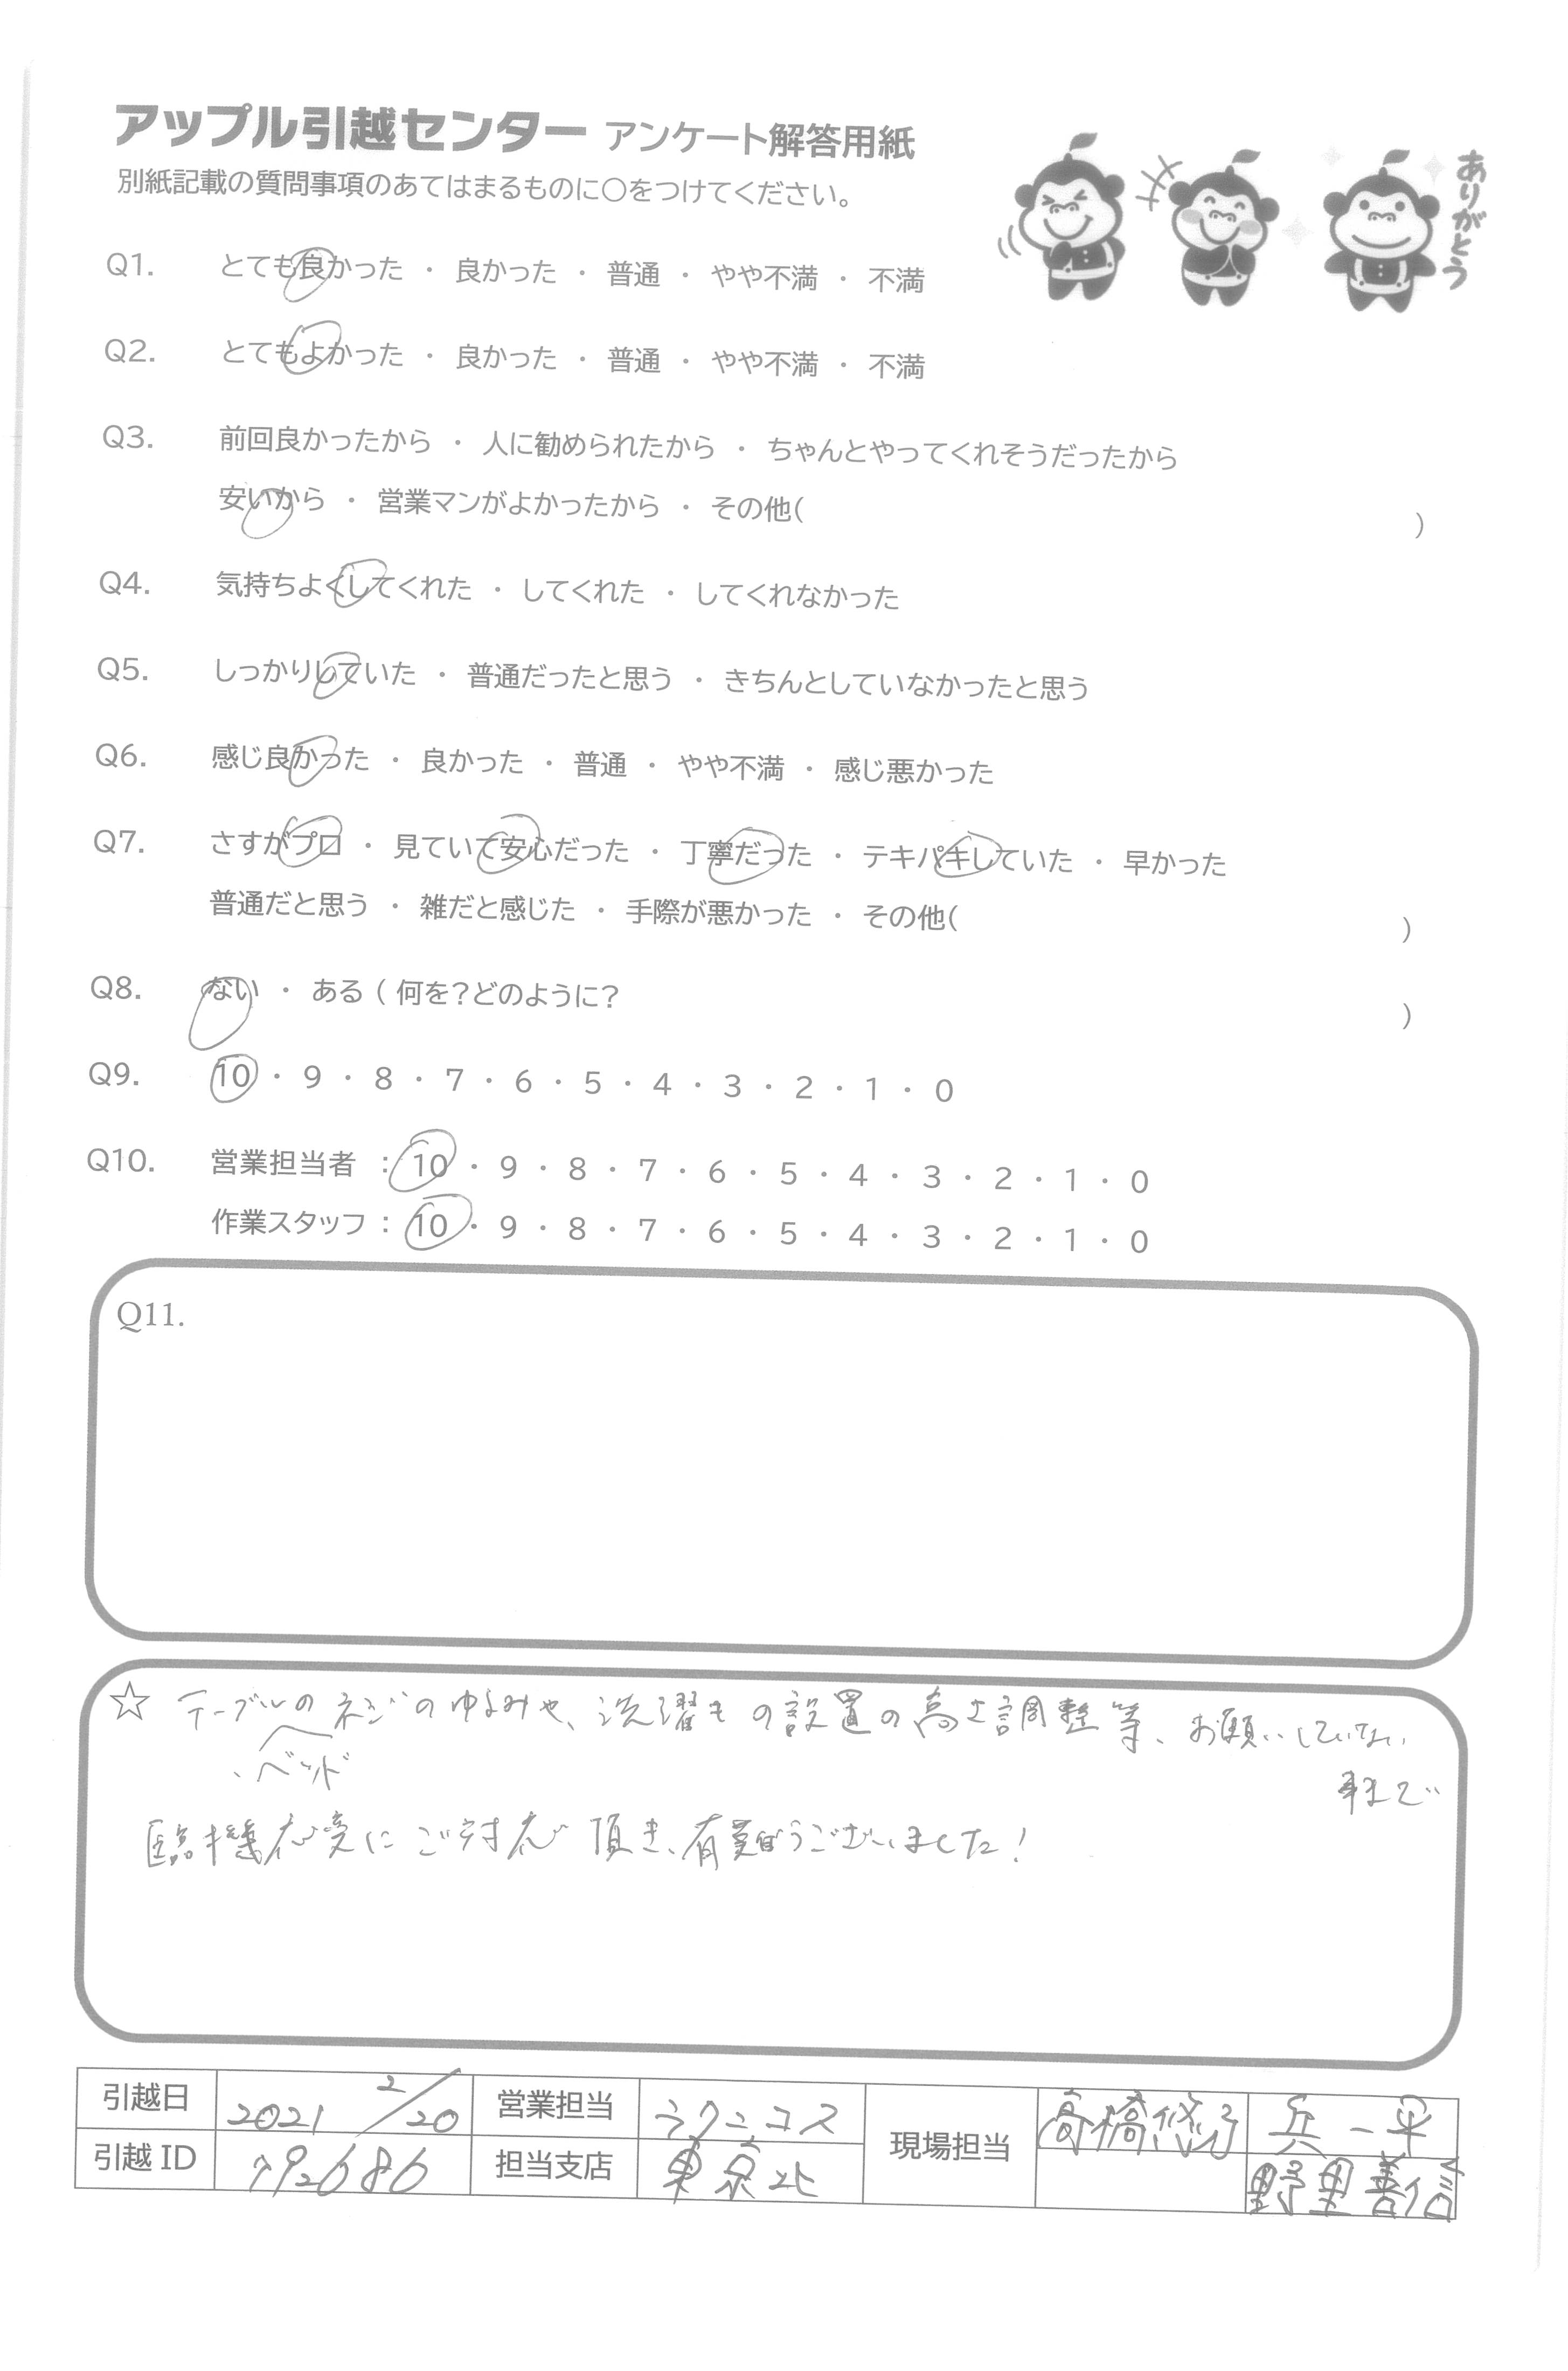 アップル引越センター アンケート解答用紙
別紙記載の質問事項のあてはまるものに○をつけてください。
ありがとう
Q1. とても良かった ・ 良かった ・ 普通 ・ やや不満 ・ 不満
Q2. とてもよかった ・ 良かった ・ 普通 ・ やや不満 ・ 不満
Q3. 前回良かったから ・ 人に勧められたから ・ ちゃんとやってくれそうだったから
安いから ・ 営業マンがよかったから ・ その他( )
Q4. 気持ちよくしてくれた ・ してくれた ・ してくれなかった
Q5. しっかりしていた ・ 普通だったと思う ・ きちんとしていなかったと思う
Q6. 感じ良かった ・ 良かった ・ 普通 ・ やや不満 ・ 感じ悪かった
Q7. さすがプロ ・ 見ていて安心だった ・ 丁寧だった ・ テキパキしていた ・ 早かった
普通だと思う ・ 雑だと感じた ・ 手際が悪かった ・ その他( )
Q8. ない ・ ある ( 何を?どのように? )
Q9. 10 ・ 9 ・ 8 ・ 7 ・ 6 ・ 5 ・ 4 ・ 3 ・ 2 ・ 1 ・ 0
Q10. 営業担当者 : 10 ・ 9 ・ 8 ・ 7 ・ 6 ・ 5 ・ 4 ・ 3 ・ 2 ・ 1 ・ 0
作業スタッフ : 10 ・ 9 ・ 8 ・ 7 ・ 6 ・ 5 ・ 4 ・ 3 ・ 2 ・ 1 ・ 0
Q11.
☆ テーブルのネジのゆるみや、洗濯きの設置の高さ調整等、お願いしていない
、ベッド
事まで
臨機応変にご対応頂き、有難うございました!
引越日 2021 2/20 営業担当 ラクニコス 現場担当 高橋悠 兵一平
引越ID 92686 担当支店 東京北 野里善信